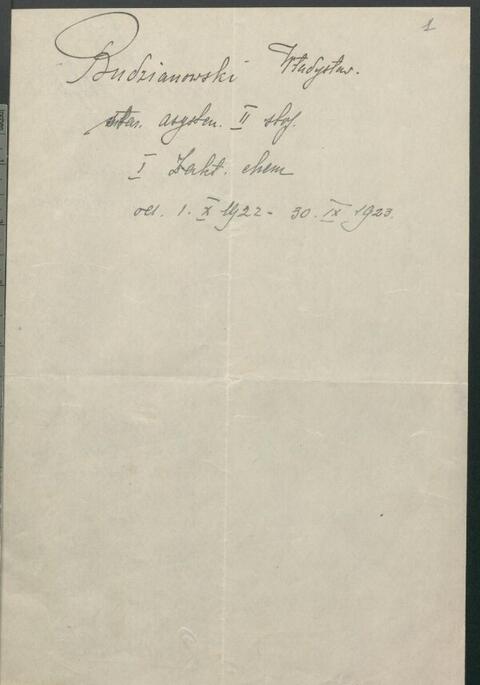 1
Budzianowski Władysław.
star. asysten. II stop.
I Zakł. chem
od. 1. X 1922 - 30. IX 1923.